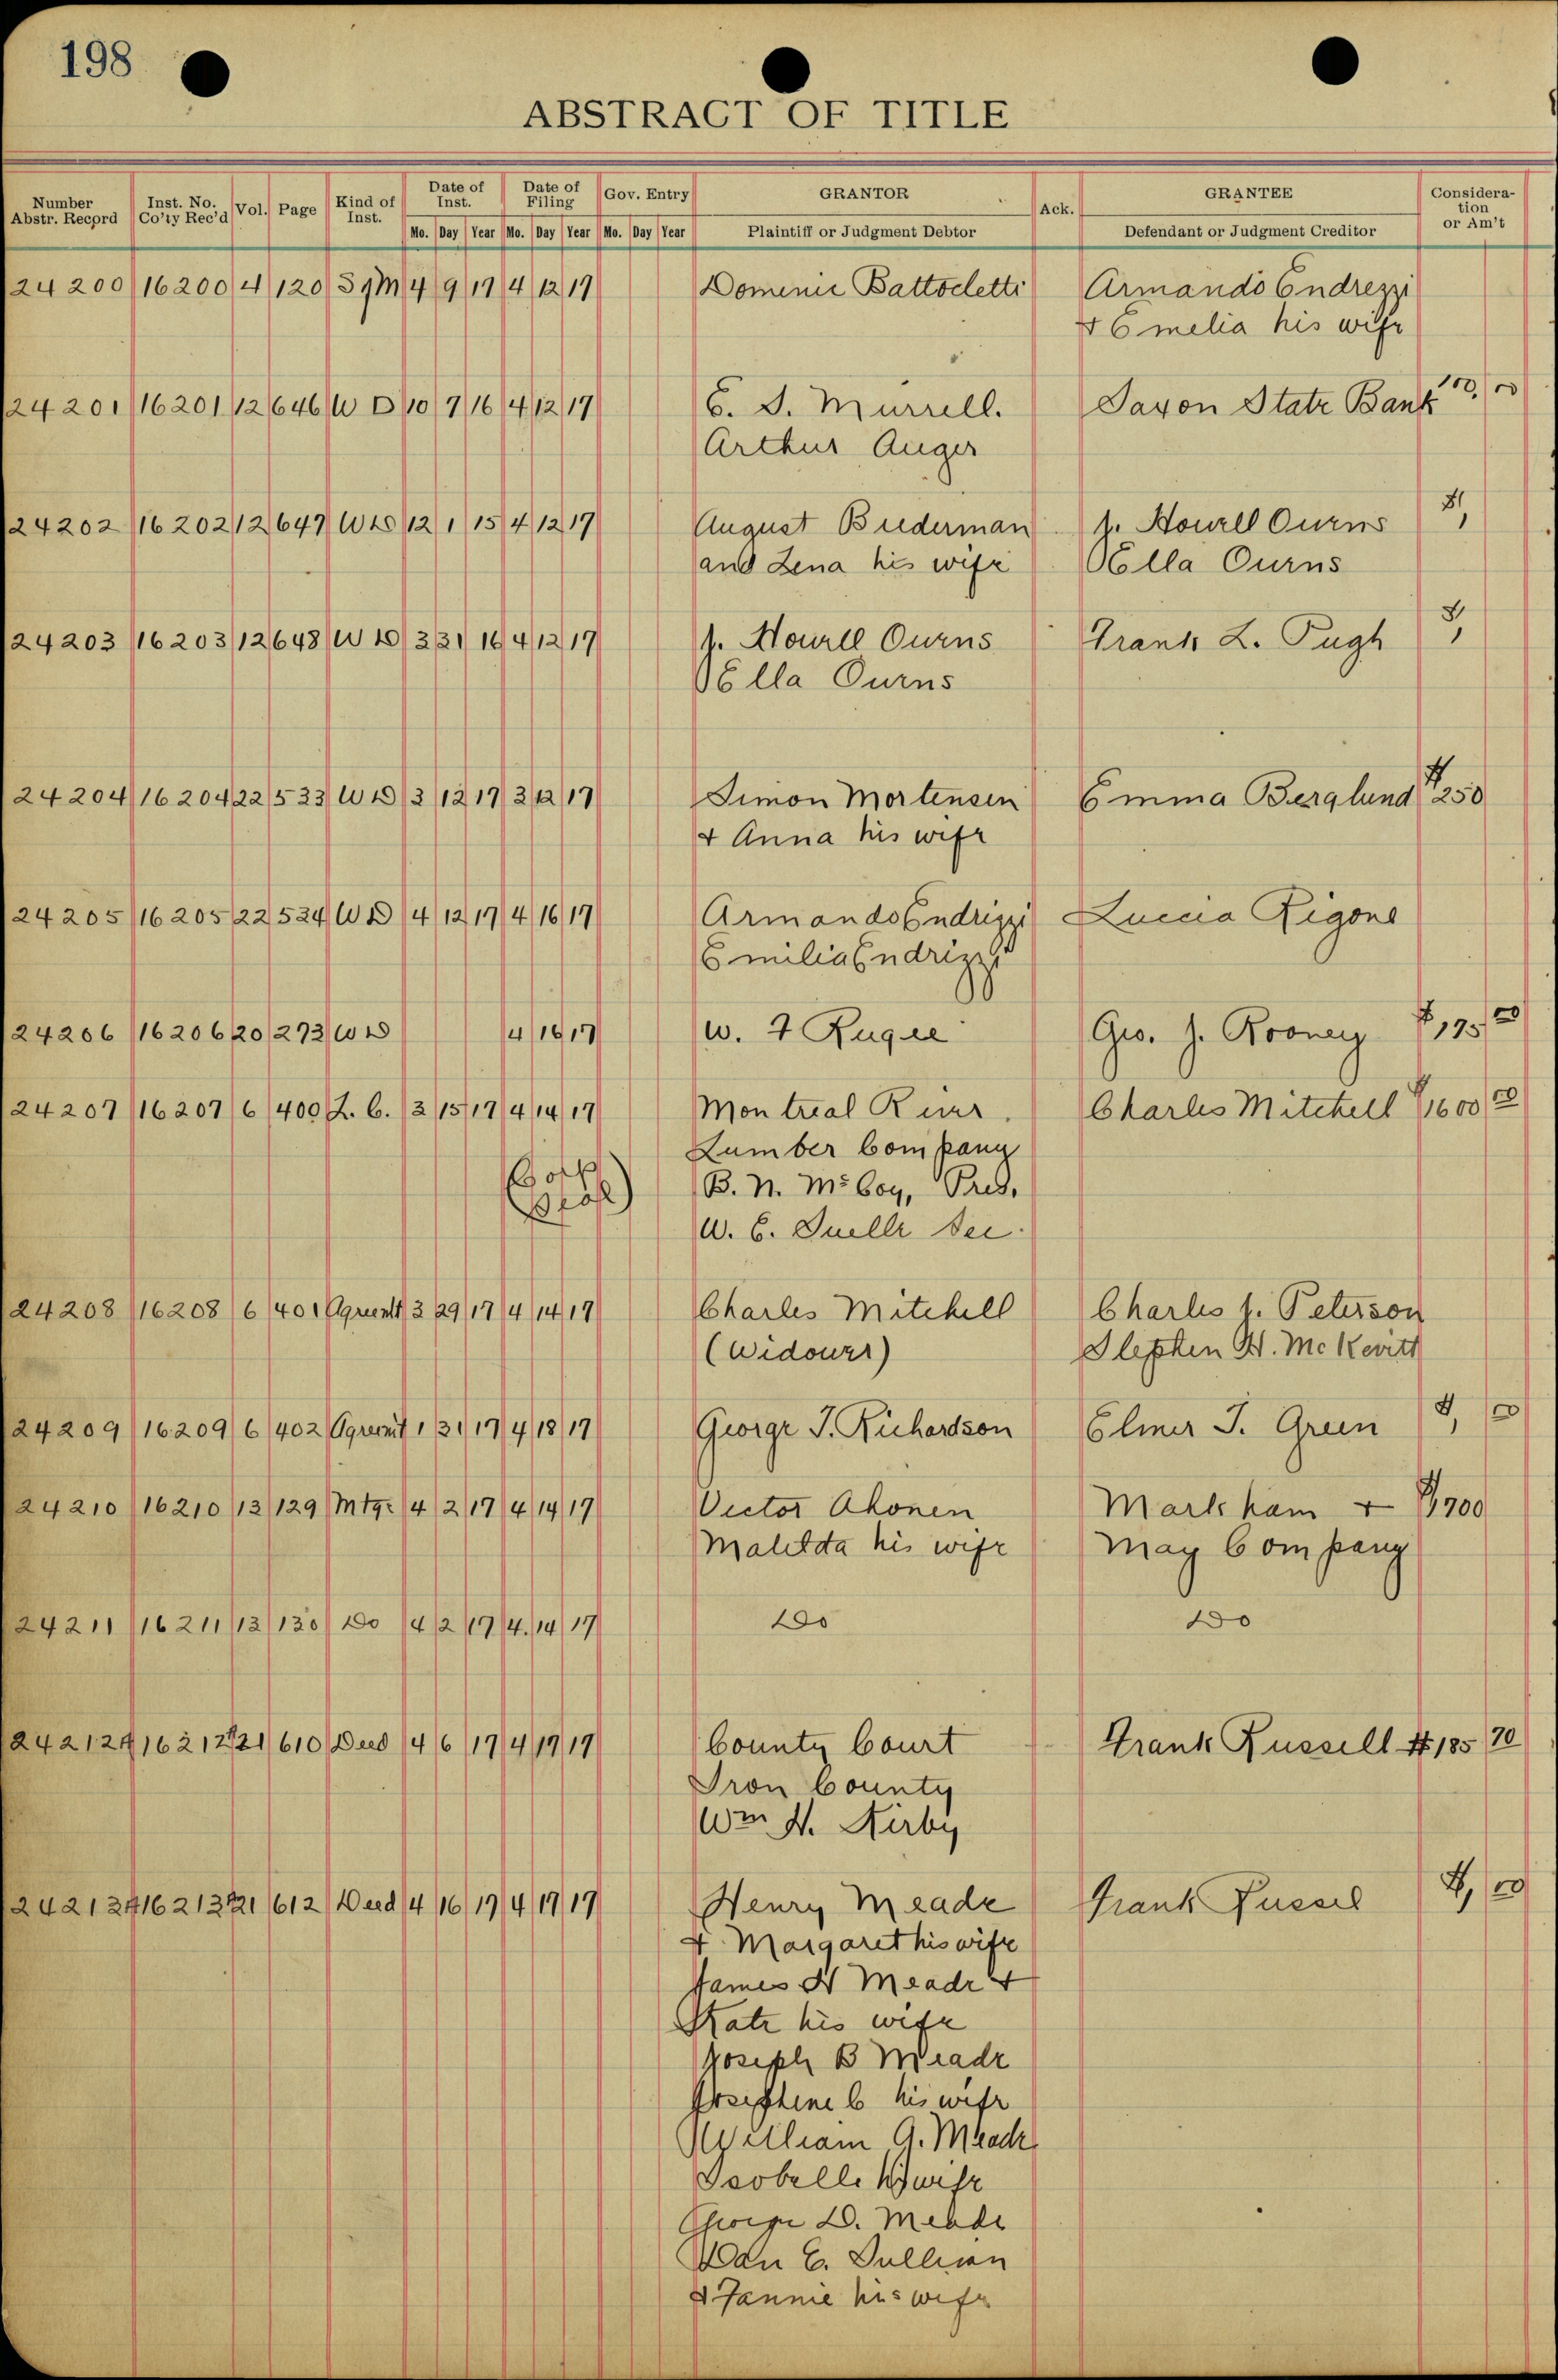 198
ABSTRACT OF TITLE
Number Abstr. Record Inst. No. Co'ty Rec'd Vol. Page Kind of Inst. Date of Inst. Date of Filing Gov. Entry GRANTOR Ack. GRANTEE Consideration or Am't
Mo. Day Year Mo. Day Year Mo. Day Year Plaintiff or Judgment Debtor Defendant or Judgment Creditor
24200 16200 4 120 SgM 4 9 17 4 12 17 Domenic Battocletti Armando Endrezzi
& Emelia his wife
24201 16201 12 646 W D 10 7 16 4 12 17 E. S. Murrell. Saxon State Bank 100,00
Arthur Auger
24202 16202 12 647 WD 12 1 15 4 12 17 August Biederman J. Howell Owens $1,
and Lena his wife Ella Owens
24203 16203 12 648 W D 3 31 16 4 12 17 J. Howell Owens Frank L. Pugh $1,
Ella Owens
24204 16204 22 533 WD 3 12 17 3 12 17 Simon Mortensen Emma Berglund $250
& Anna his wife
24205 16205 22 534 WD 4 12 17 4 16 17 Armando Endrizzi Luccia Rigone
Emilia Endrizzi
24206 16206 20 273 WD 4 16 17 W. F Rugee Geo. J. Rooney $175,00
24207 16207 6 400 L. C. 3 15 17 4 14 17 Montreal River Charles Mitchell $1600 00
Lumber Company
(Corp Seal) B. N. McCoy, Pres.
W. E. Suelle Sec.
24208 16208 6 401 Agremt 3 29 17 4 14 17 Charles Mitchell Charles J. Peterson
(Widower) Stephen H. McKevitt
24209 16209 6 402 Agremt 1 31 17 4 18 17 George T. Richardson Elmer T. Green $1, 00
24210 16210 13 129 Mtg. 4 2 17 4 14 17 Victor Ahonen Markham & $1,700
Malilda his wife May Company
24211 16211 13 130 Do 4 2 17 4 14 17 Do Do
24212 16212 21 610 Deed 4 6 17 4 17 17 County Court Frank Russell $185 70
Iron County
Wm H. Kirby
24213 16213 21 612 Deed 4 16 17 4 17 17 Henry Meade Frank Russel $1, 00
& Margaret his wife
James H Meade &
Kate his wife
Joseph B Meade
Josephine C his wife
William G. Meade
Isobelle his wife
George D. Meade
Dan E. Sullivan
& Fannie his wife